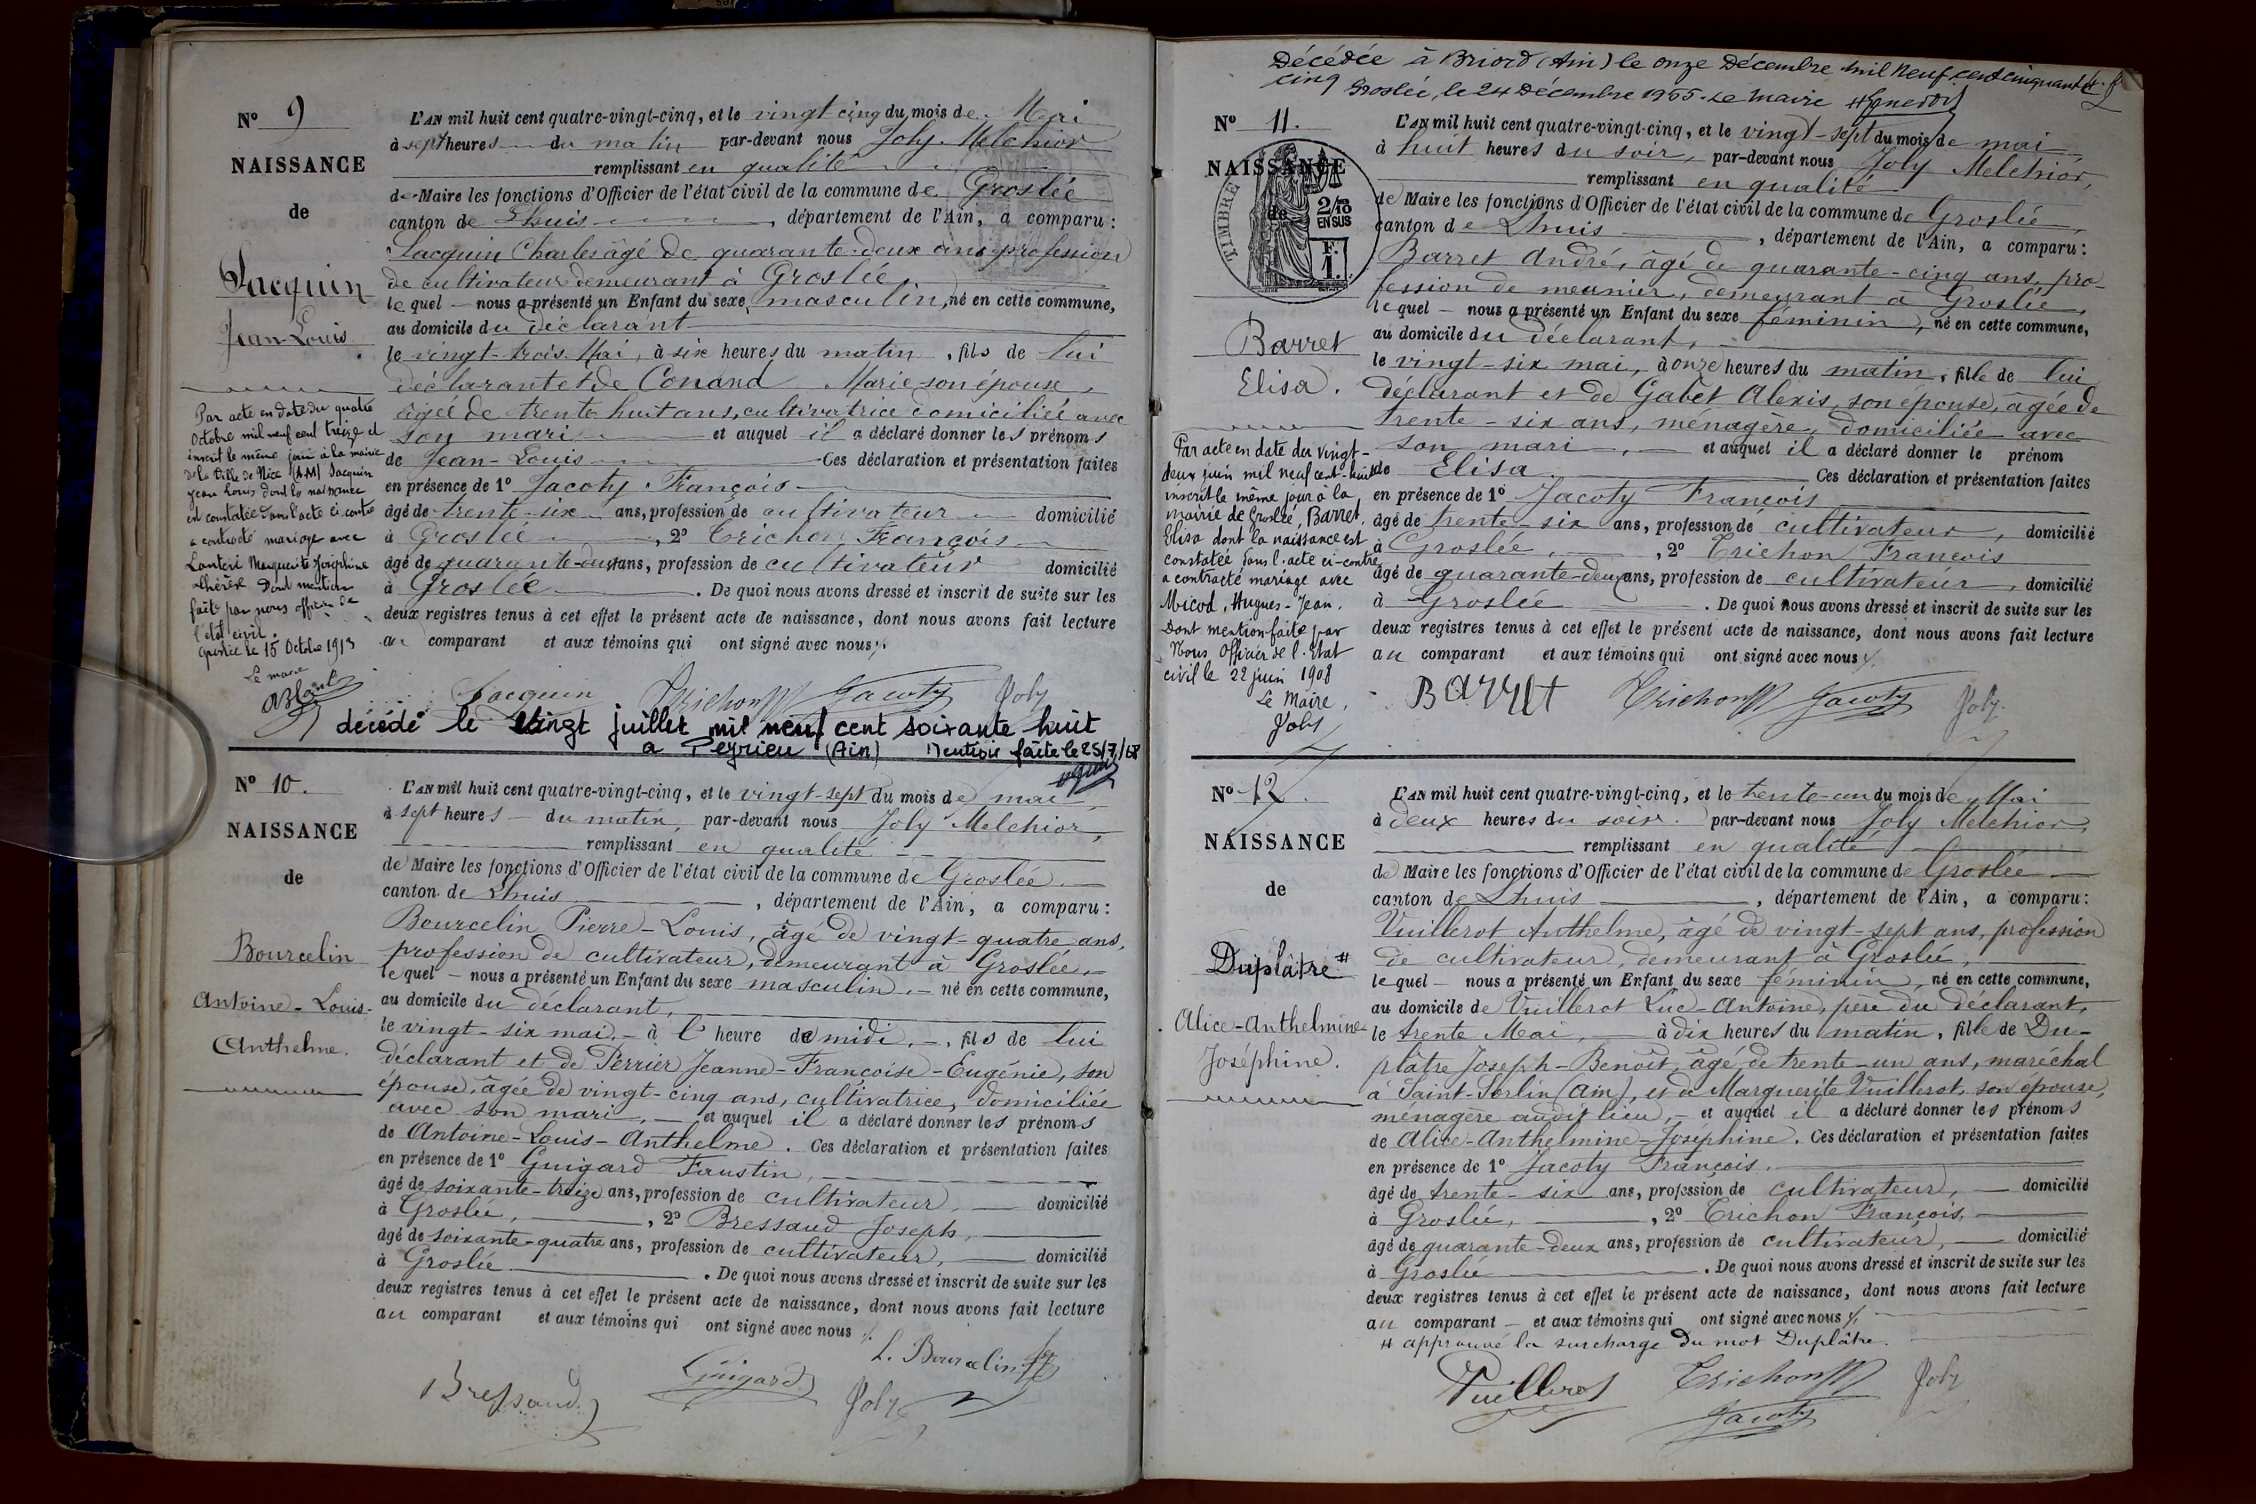 N° 9
NAISSANCE
de
Jacquin
Jean-Louis.
Par acte en date du quatre
Octobre mil neuf cent treize et
inscrit le même jour à la mairie
de la Ville de Nice (A.M) Jacquin
Jean Louis dont la naissance
est constatée dans l'acte ci-contre
a contracté mariage avec
Lanteri Marguerite Joséphine
Thérèse Dont mention
faite par nous officier de
l'état civil.
Groslée le 15 Octobre 1913
Le maire
L'AN mil huit cent quatre-vingt-cinq, et le vingt cinq du mois de Mai
à sept heures du matin par-devant nous Joly Melchior
remplissant en qualité
de Maire les fonctions d'Officier de l'état civil de la commune de Groslée
canton de Lhuis, département de l'Ain, a comparu:
Jacquin Charles âgé de quarante-deux ans profession
de cultivateur demeurant à Groslée
lequel nous a présenté un Enfant du sexe masculin, né en cette commune,
au domicile du déclarant
le vingt-trois Mai, à six heures du matin, fils de lui
déclarant et de Conand Marie son épouse,
âgée de trente huit ans, cultivatrice domiciliée avec
son mari et auquel il a déclaré donner les prénoms
de Jean-Louis Ces déclaration et présentation faites
en présence de 1° Jacoty François
âgé de trente-six ans, profession de cultivateur domicilié
à Groslée, 2° Trichon François
âgé de quarante-deux ans, profession de cultivateur domicilié
à Groslée. De quoi nous avons dressé et inscrit de suite sur les
deux registres tenus à cet effet le présent acte de naissance, dont nous avons fait lecture
au comparant et aux témoins qui ont signé avec nous
Jacquin Trichon Jacoty Joly
décédé le vingt juillet mil neuf cent soixante huit
à Peyrieu (Ain) Mention faite le 25/7/68
N° 10.
NAISSANCE
de
Bourcelin
Antoine-Louis-
Anthelme.
L'AN mil huit cent quatre-vingt-cinq, et le vingt-sept du mois de mai,
à sept heures du matin, par-devant nous Joly Melchior,
remplissant en qualité
de Maire les fonctions d'Officier de l'état civil de la commune de Groslée
canton de Lhuis, département de l'Ain, a comparu:
Bourcelin Pierre-Louis, âgé de vingt-quatre ans,
profession de cultivateur, demeurant à Groslée,
lequel nous a présenté un Enfant du sexe masculin, né en cette commune,
au domicile du déclarant,
le vingt-six mai, à l'heure de midi, fils de lui
déclarant et de Perrier Jeanne-Françoise-Eugénie, son
épouse, âgée de vingt-cinq ans, cultivatrice, domiciliée
avec son mari, et auquel il a déclaré donner les prénoms
de Antoine-Louis-Anthelme. Ces déclaration et présentation faites
en présence de 1° Guigard Faustin,
âgé de soixante-treize ans, profession de cultivateur, domicilié
à Groslée, 2° Bressaud Joseph,
âgé de soixante-quatre ans, profession de cultivateur, domicilié
à Groslée. De quoi nous avons dressé et inscrit de suite sur les
deux registres tenus à cet effet le présent acte de naissance, dont nous avons fait lecture
au comparant et aux témoins qui ont signé avec nous
L. Bourcelin
Bressaud Guigard Joly
Décédée à Briord (Ain) le onze Décembre mil Neuf cent cinquante
cinq Groslée, le 24 Décembre 1955. Le Maire
N° 11.
NAISSANCE
de
TIMBRE
2/10
EN SUS
F.
1.
Barret
Elisa.
Par acte en date du vingt-
deux juin mil neuf cent-huit
inscrit le même jour à la
mairie de Groslée, Barret
Elisa dont la naissance est
constatée dans l'acte ci-contre
a contracté mariage avec
Micod, Hugues-Jean.
Dont mention faite par
Nous Officier de l'Etat
civil le 22 juin 1908
Le Maire,
Joly
L'AN mil huit cent quatre-vingt-cinq, et le vingt-sept du mois de mai
à huit heures du soir, par-devant nous Joly Melchior,
remplissant en qualité
de Maire les fonctions d'Officier de l'état civil de la commune de Groslée,
canton de Lhuis, département de l'Ain, a comparu:
Barret André, âgé de quarante-cinq ans, pro-
fession de meunier, demeurant à Groslée,
lequel nous a présenté un Enfant du sexe féminin, né en cette commune,
au domicile du déclarant,
le vingt-six mai, à onze heures du matin, fille de lui
déclarant et de Gabet Alexis, son épouse, âgée de
trente-six ans, ménagère, domiciliée avec
son mari, et auquel il a déclaré donner le prénom
de Elisa. Ces déclaration et présentation faites
en présence de 1° Jacoty François
âgé de trente-six ans, profession de cultivateur, domicilié
à Groslée, 2° Trichon François
âgé de quarante-deux ans, profession de cultivateur, domicilié
à Groslée. De quoi nous avons dressé et inscrit de suite sur les
deux registres tenus à cet effet le présent acte de naissance, dont nous avons fait lecture
au comparant et aux témoins qui ont signé avec nous
Barret Trichon Jacoty Joly
N° 12.
NAISSANCE
de
Duplâtre #
Alice-Anthelmine-
Joséphine.
L'AN mil huit cent quatre-vingt-cinq, et le trente-un du mois de Mai
à deux heures du soir. par-devant nous Joly Melchior,
remplissant en qualité
de Maire les fonctions d'Officier de l'état civil de la commune de Groslée
canton de Lhuis, département de l'Ain, a comparu:
Vuillerot Anthelme, âgé de vingt-sept ans, profession
de cultivateur, demeurant à Groslée,
lequel nous a présenté un Enfant du sexe féminin, né en cette commune,
au domicile de Vuillerot Luc-Antoine, père du déclarant,
le trente Mai, à dix heures du matin, fille de Du-
plâtre Joseph-Benoît, âgé de trente-un ans, maréchal
à Saint-Sorlin (Ain), et de Marguerite Vuillerot, son épouse,
ménagère audit lieu, et auquel il a déclaré donner les prénoms
de Alice-Anthelmine-Joséphine. Ces déclaration et présentation faites
en présence de 1° Jacoty François.
âgé de trente-six ans, profession de cultivateur, domicilié
à Groslée, 2° Trichon François,
âgé de quarante-deux ans, profession de cultivateur, domicilié
à Groslée. De quoi nous avons dressé et inscrit de suite sur les
deux registres tenus à cet effet le présent acte de naissance, dont nous avons fait lecture
au comparant et aux témoins qui ont signé avec nous
# approuvé la surcharge du mot Duplâtre.
Vuillerot Trichon Joly
Jacoty